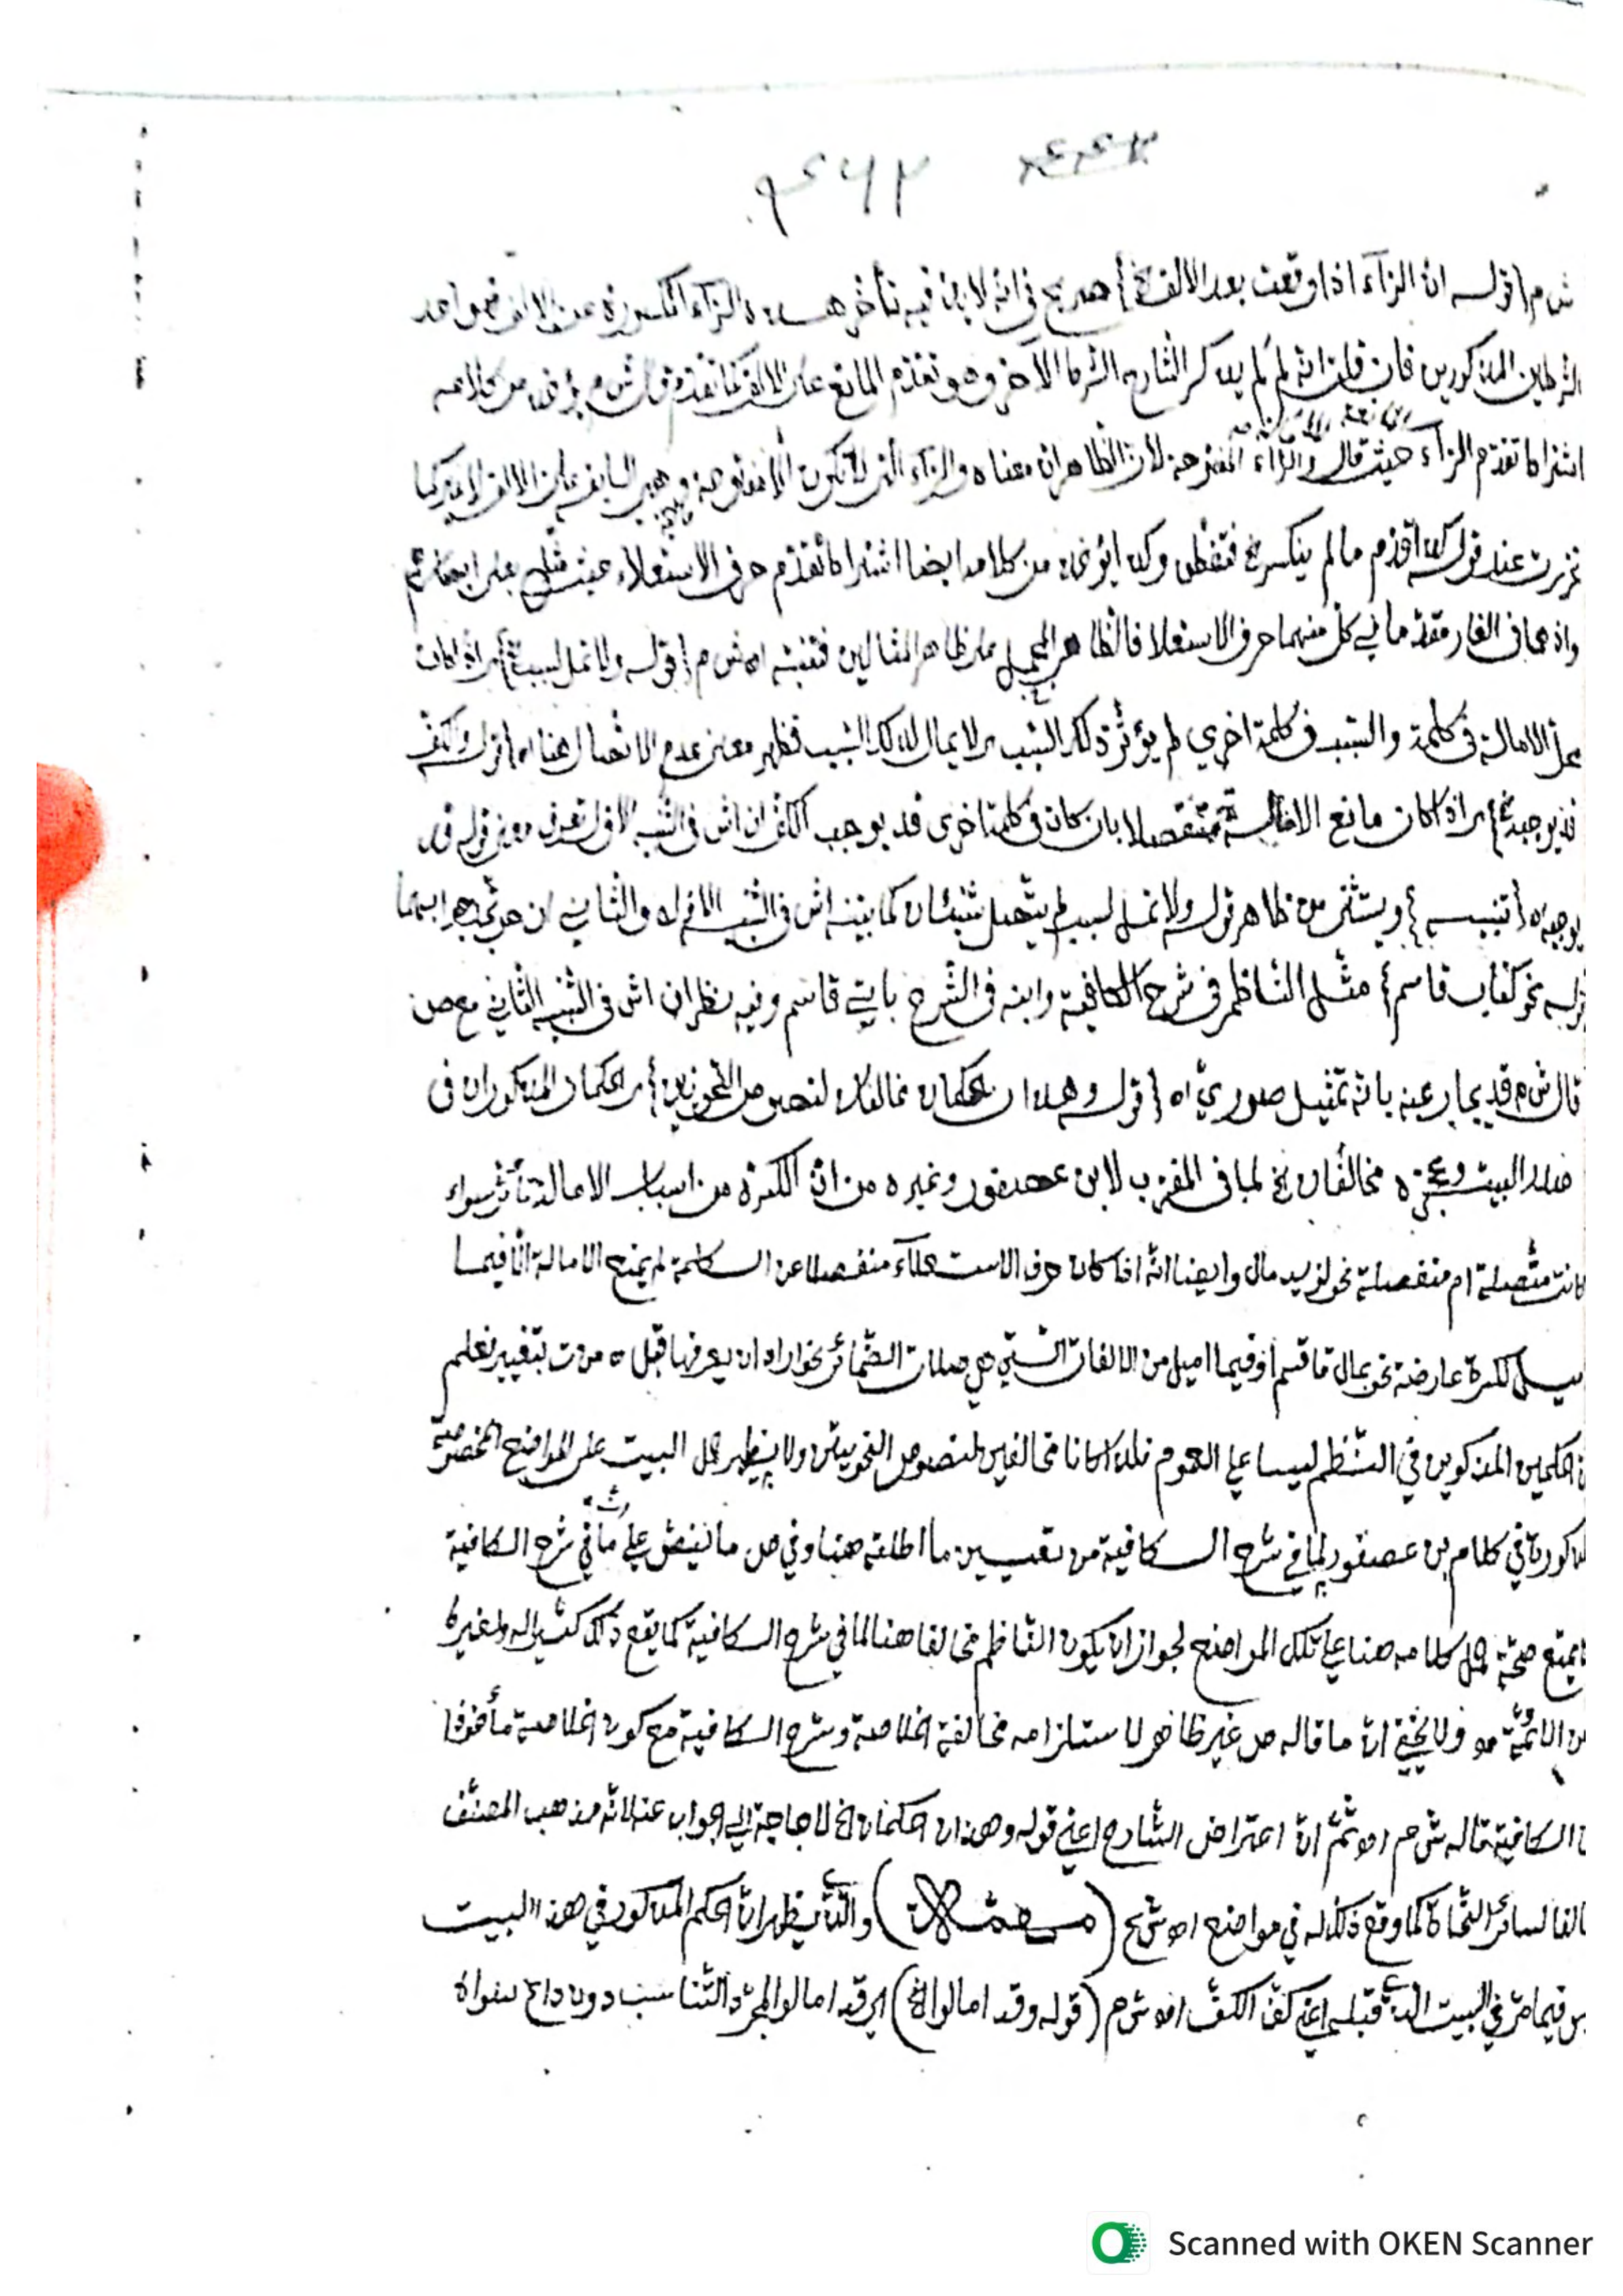 ش م {قوله ان الرّاء اذا وقعت بعد الالف الخ} صريح في انّه لا بدّ فيه تأخر هذه الرّاء المكسورة عن الالف فهو احد
الشرطين المذكورين فان قلت انه لِمَ لم يذكر الشارح الشرط الآخر وهو تقدّم المانع على الالف كما تقدم قال ش م يؤخذ من كلامه
اشتراط تقدّم الرّاء حيث قال والرّاء المفتوحة لانّ الظّاهر ان معناه والرّاء التي لا تكون الّا مفتوحة وهي السابقة على الالف لا غير كما
تحررت عند قوله كذا قدّم ما لم ينكسر الخ فتفطّن وكذا يؤخذ من كلامه ايضا اشتراط تقدّم حرف الاستعلاء حيث مثل على ابصارهم
واذ هما في الغار مقدّما في كل منهما حرف الاستعلا فالظاهر المجمل على ظاهر المثالين فتنبّه اه ش م {قوله ولا تمل لسبب الخ} اي اذا كان
محلّ الامالة في كلمة والسّبب في كلمة اخري لم يؤثّر ذلك السّبب اي لا يمال لذلك السّبب فظهر معنى عدم الاتّصال هنا اه {قوله والكفّ
قد يوجبه الخ} اي اذا كان مانع الامالة منفصلا بان كان في كلمة اخرى قد يوجب الكفّ ان اش في التّنبيه الاوّل تعرف معنى قوله قد
يوجبه اه {تنبيه} ويستثنى من ظاهر قوله ولا تمل لسبب لم يتّصل شيئان كما بيّنه اش في التّنبيه الاوّل اه والثّاني ان
قوله نحو كتاب قاسم} مثّل النّاظم في شرح الكافية وابنه في الشّرح بايتي قاسم وفيه نظر ان اش في التّنبيه الثّاني مع ص
قال ش م قد يجاب عنه بانّه تمثيل صوريّ اه {قوله وهذان الحكمان مخالفان لنصوص النّحويّين} اي الحكمان المذكوران في
هذا البيت وعجزه مخالفان الخ لما في المقرّب لابن عصفور وغيره من انّ الكسرة من اسباب الامالة تأثر سواء
كانت متّصلة ام منفصلة نحو لزيد مال وايضا انّه اذا كان حرف الاستعلآء منفصلا عن الكلمة لم يمنع الامالة الّا فيما
اميل لكسرة عارضة نحو بمال قاسم او فيما اميل من الالفات الّتي هي صلات الضّمائر نحو اراد ان يعرفها قبل ه من ت بتغيير نعلم
انّ الحكمين المذكورين في النّظم ليسا على العموم فلذا كانا مخالفين لنصوص النّحويين ولا يظهر حمل البيت على المواضع المخصوصة
المذكورة في كلام بن عصفور لما في شرح الكافية من تقييد ما اطلقه هنا وفي ص ما نيفض على انّ ما في شرح الكافية
لا يمنع صحّة حمل كلامه هنا على تلك المواضع لجواز ان يكون النّاظم مخالفا هنا لما في شرح الكافية كما يقع ذلك كثيرا له ولغيره
من الائمّة هو ولا يخفى انّ ما قاله ص غير ظاهر لاستلزامه مخالفة الخلاصة وشرح الكافية مع كون الخلاصة مأخوذا
من الكافية قاله ش م اهو ثمّ انّ اعتراض الشّارح اعني قوله وهذان الحكمان الخ لا حاجة الى الجواب عنه لانّه مذهب المصنّف
مخالفا لسائر النّحاة كما وقع ذلك له في مواضع اهو ش ح ( ) والّذي يظهر انّ الحكم المذكور في هذا البيت
ليس فيما مرّ في البيت الّذي قبله اعني كفّ الكفّ اهو ش م (قوله وقد امالوا الخ) اي قد امالوا لمجرّد التّناسب دون داع سواه
Scanned with OKEN Scanner